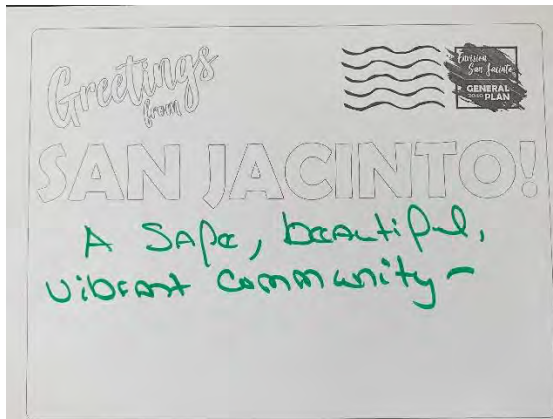 Greetings
from
Envision
San Jacinto
GENERAL
2040 PLAN
SAN JACINTO!
A SAFE, beautiful,
vibrant community-